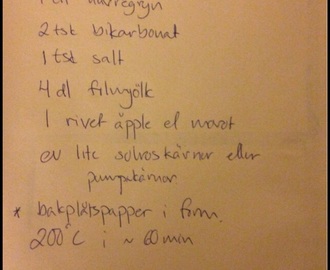 1 dl havregryn
2 tsk bikarbonat
1 tst salt
4 dl filmjölk
1 rivet äpple el morot
ev lite solroskärnor eller
pumpakärnor.
* bakplåtspapper i form.
200°C i ~ 60 min